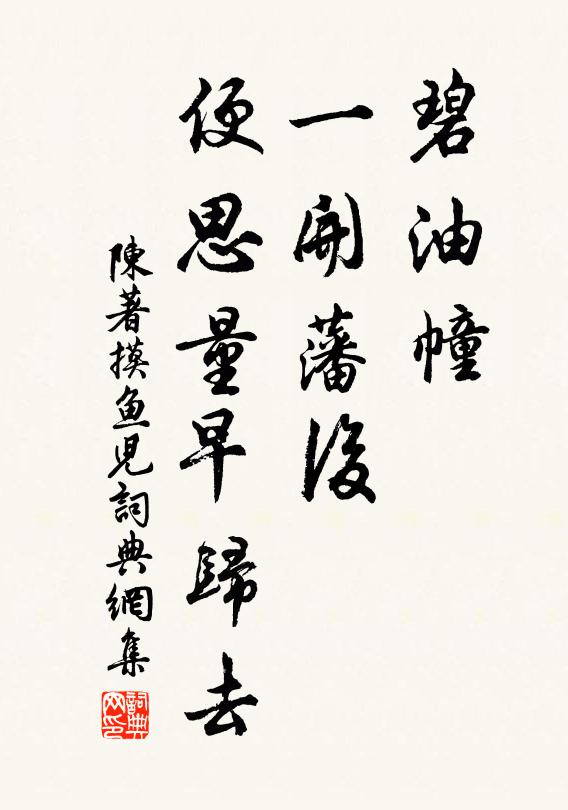 碧油幢
一開藩後
便思量早歸去
陳著摸魚兒詞典網集
詞典網印